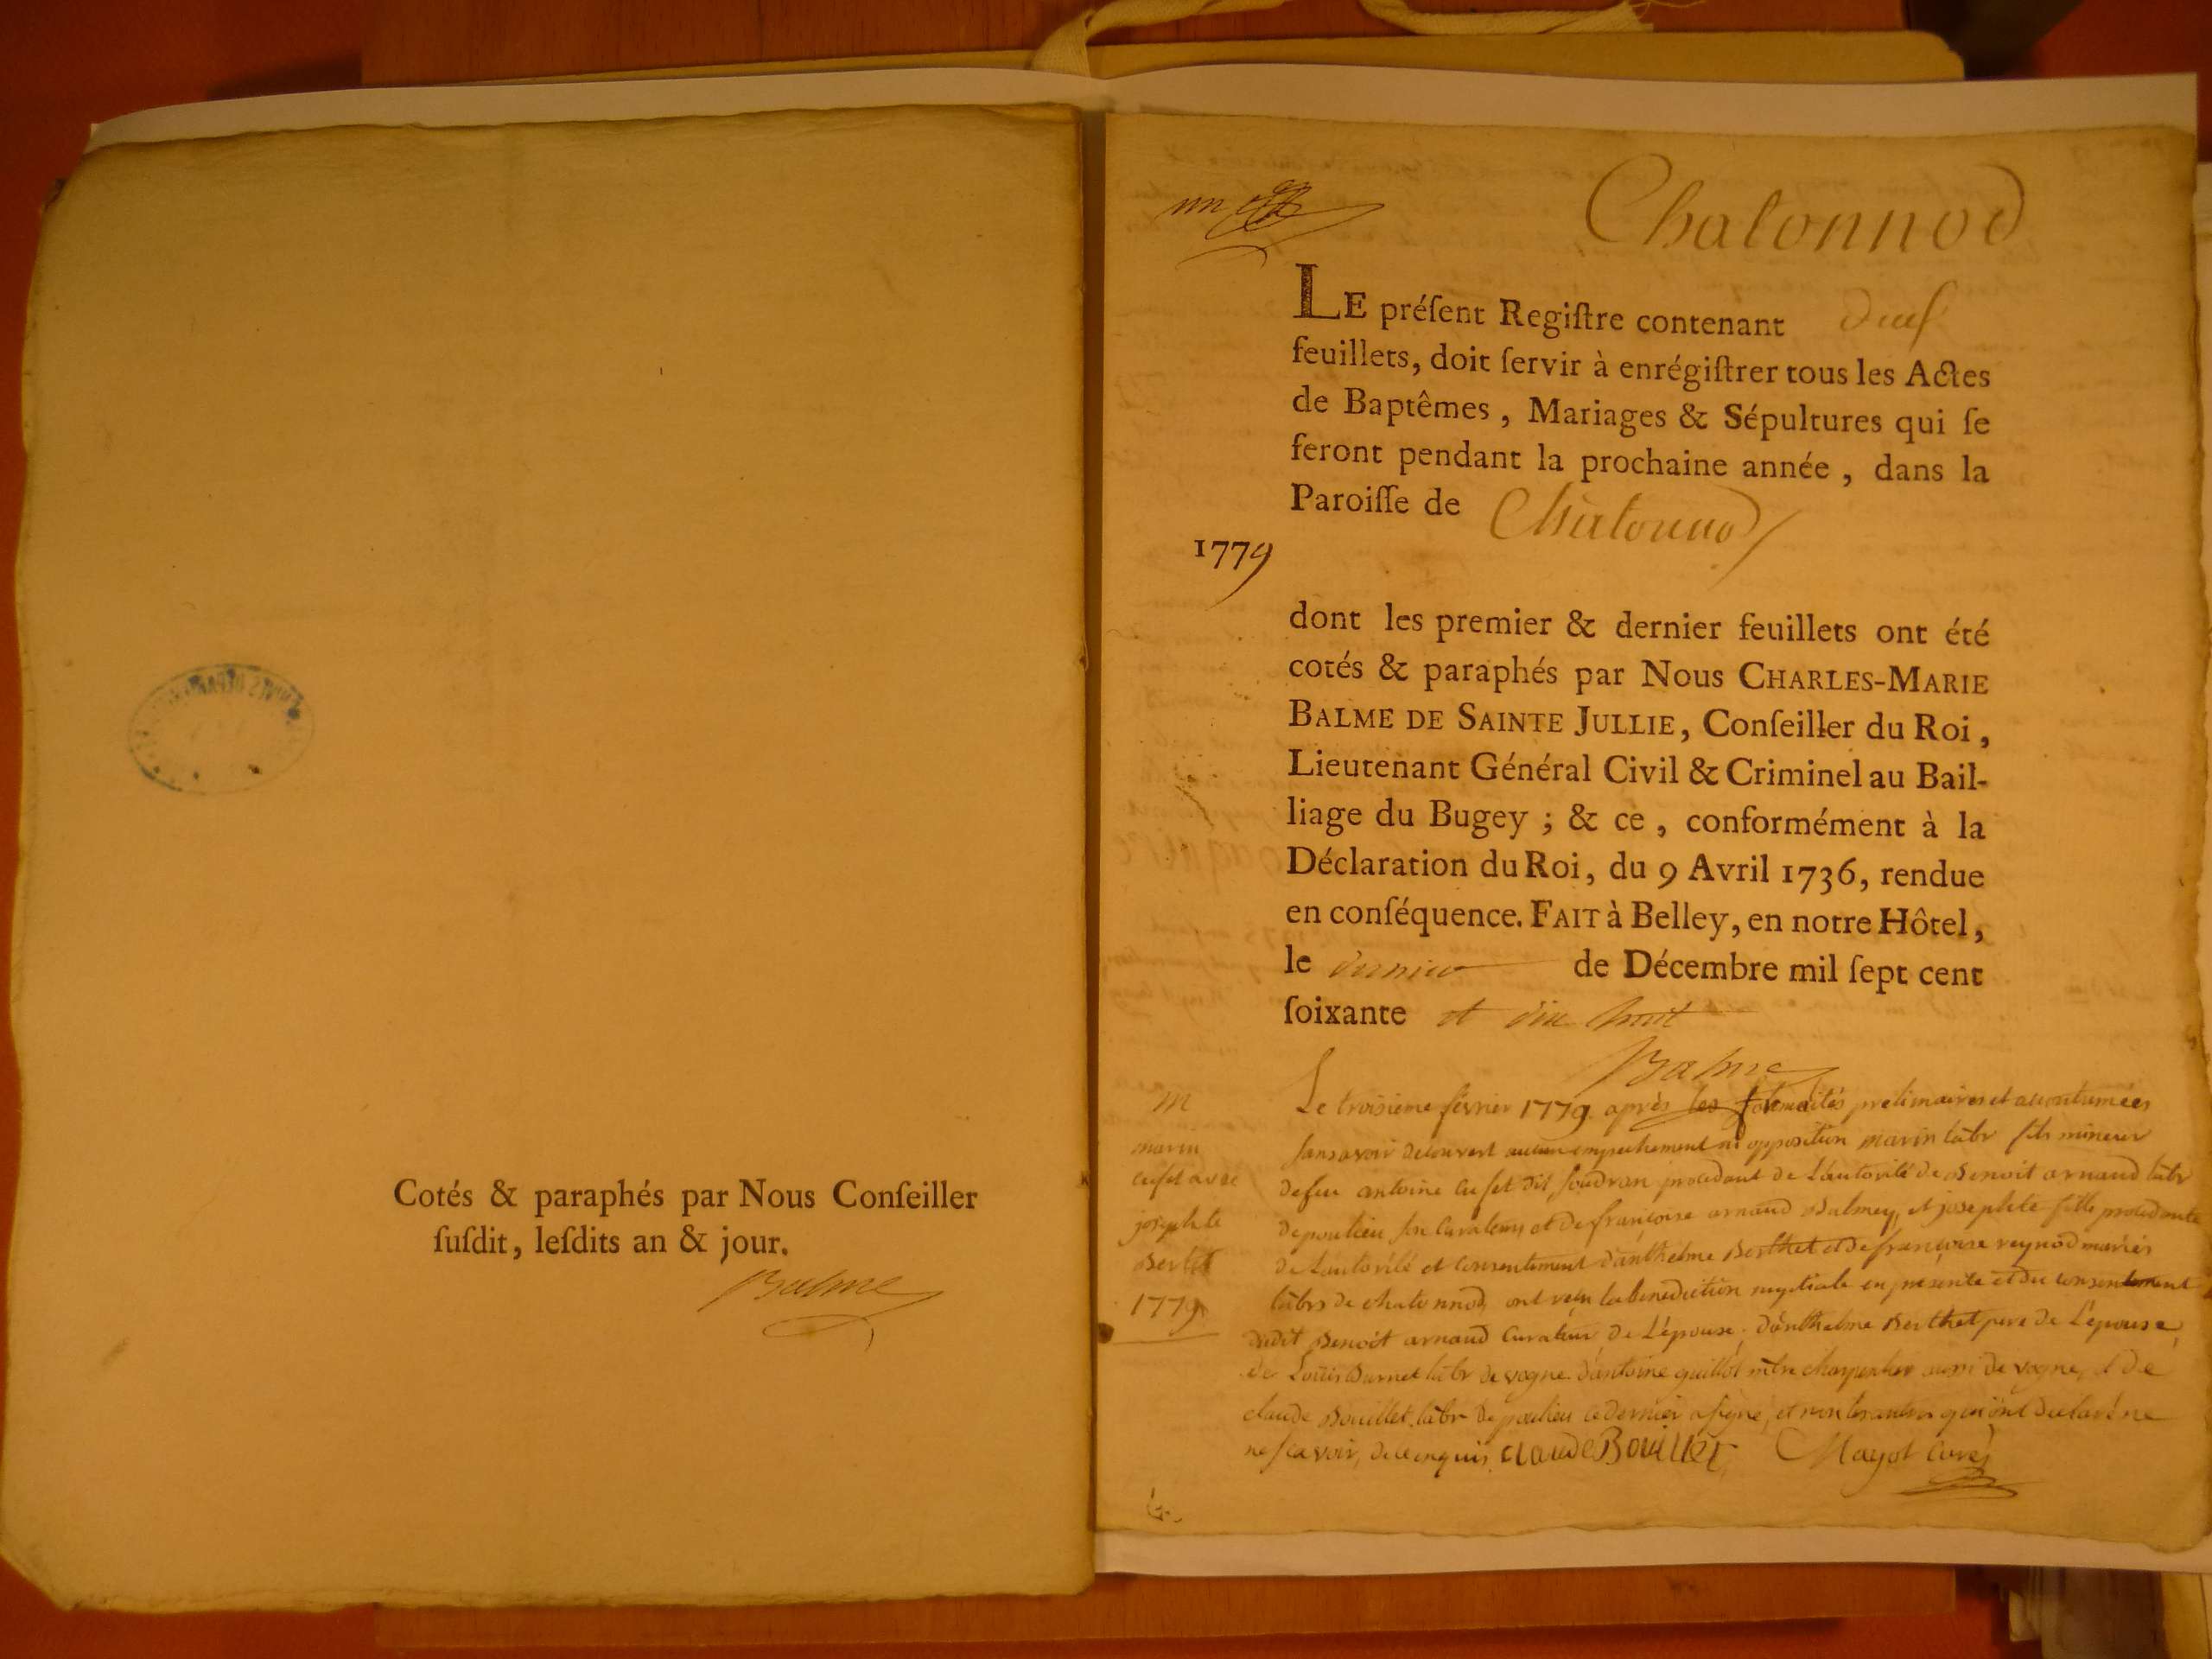 Cotés & paraphés par Nous Conſeiller
ſuſdit, leſdits an & jour.
Balme
un
Chatonnod
LE préſent Regiſtre contenant
feuillets, doit ſervir à enrégiſtrer tous les Actes
de Baptêmes, Mariages & Sépultures qui ſe
feront pendant la prochaine année, dans la
Paroiſſe de Chatonnod
1779
dont les premier & dernier feuillets ont été
cotés & paraphés par Nous CHARLES-MARIE
BALME DE SAINTE JULLIE, Conſeiller du Roi,
Lieutenant Général Civil & Criminel au Bail-
liage du Bugey ; & ce, conformément à la
Déclaration du Roi, du 9 Avril 1736, rendue
en conſéquence. FAIT à Belley, en notre Hôtel,
le dernier de Décembre mil ſept cent
ſoixante et dix huit
Balme
M
marin
cuſet avec
josephte
Bertet
1779
Le troisieme février 1779 après les formalités preliminaires et accoutumées
sans avoir decouvert aucun empechement ni opposition marin labr fils mineur
defeu antoine cuſet dit procedant de L'autorité de Benoit arnaud labr
de poulieu et de françoise arnaud Balmey, et josephte fille procedante
de L'autorité et consentement d'anthelme Berthet et de françoise reynod mariés
labrs de chatonnod, ont reçu la benediction nuptiale en presence et du consentement
dudit Benoit arnaud Curateur, de L'épouse, d'anthelme Berthet pere de L'epouse,
de Louis Burnet labr de vogne d'antoine guillot mtre charpentier aussi de vogne, et de
claude Bouillet labr de poulieu ce dernier a ſigné, et non les autres qui ont declaré ne
ne ſcavoir, de ce enquis. claude Bouillet Mayot Curé